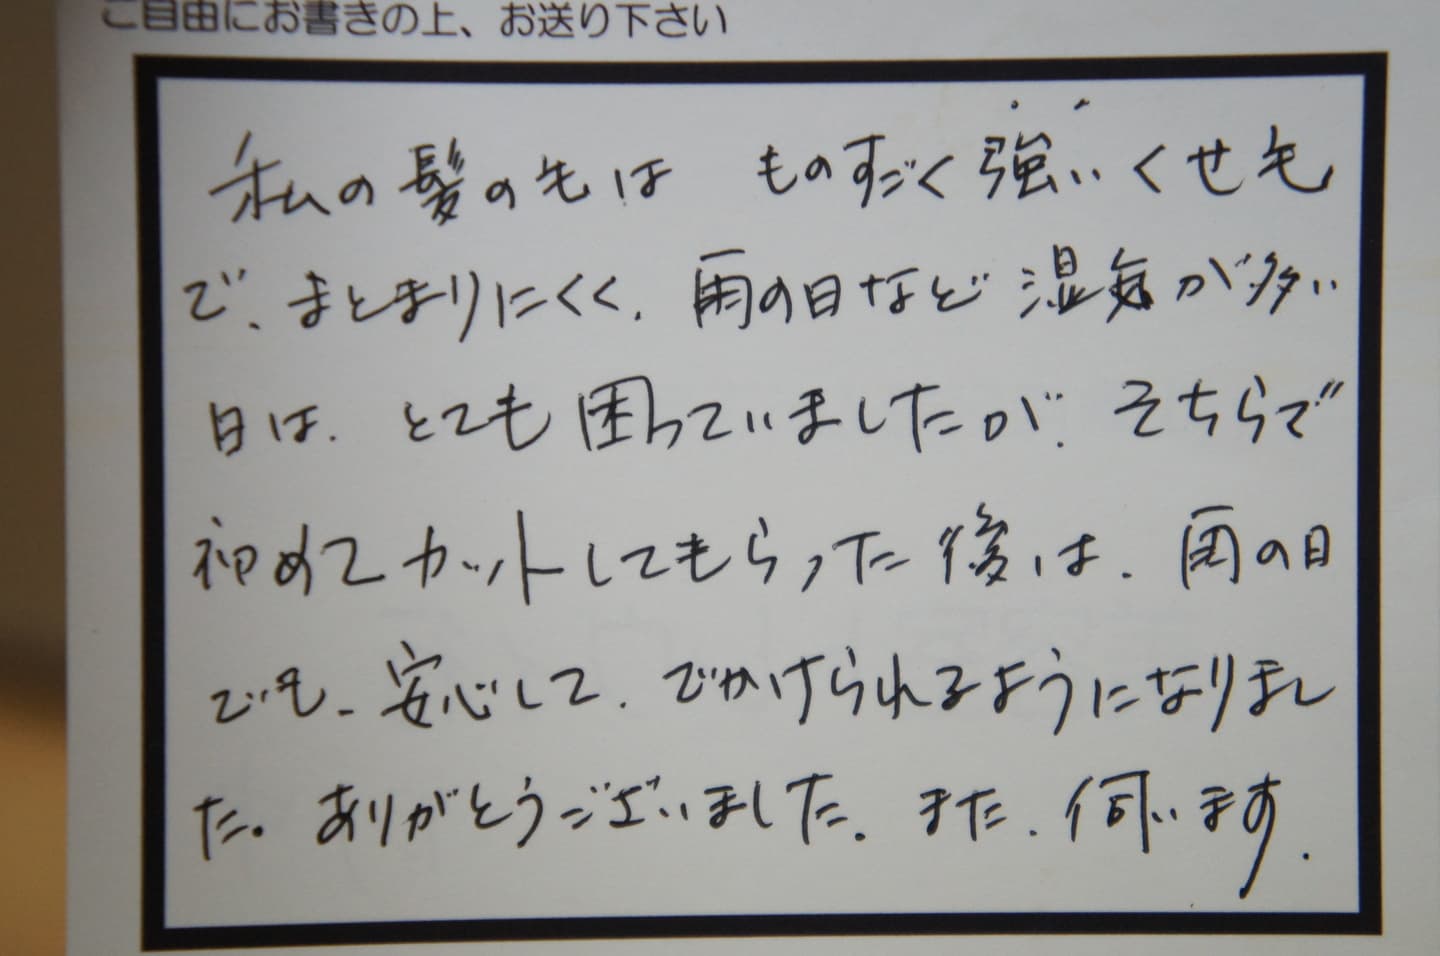 ご自由にお書きの上、お送り下さい
私の髪の毛は ものすごく強いくせ毛
で、まとまりにくく、雨の日など湿気が多い
日は、とても困っていましたが、そちらで
初めてカットしてもらった後は、雨の日
でも、安心して、でかけられるようになりまし
た。ありがとうございました。また、伺います。